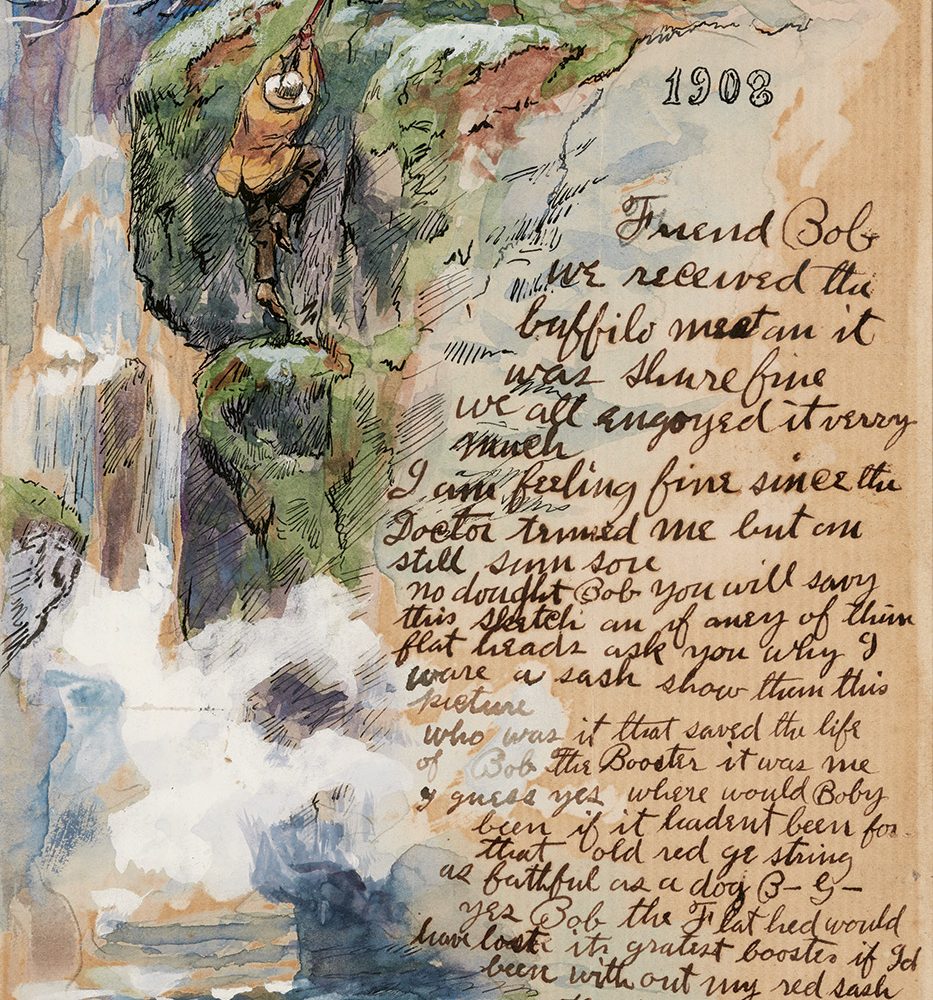 1908
Friend Bob
we received the
buffilo meat an it
was shure fine
we all engoyed it verry
much
I am feeling fine since the
Doctor trimed me but am
still sum sore
no dought Bob you will savy
this sketch an if aney of them
flat heads ask you why I
ware a sash show them this
picture
who was it that saved the life
of Bob The Booster it was me
I guess yes where would Boby
been if it hadent been for
that old red ge string
as faithful as a dog B- G-
yes Bob the Flat hed would
have lost its gratest booster if Id
been with out my red sash